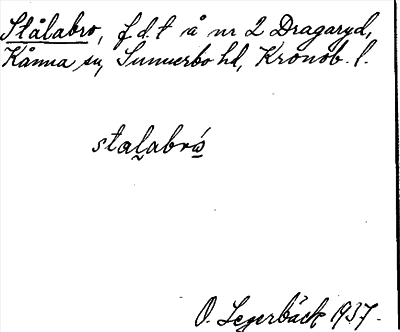 Stålabro, f.d. t å nr 2 Dragaryd,
Kånna sn, Sunnerbo hd, Kronob. l.
stalabró
O. Segerbäck 1937.